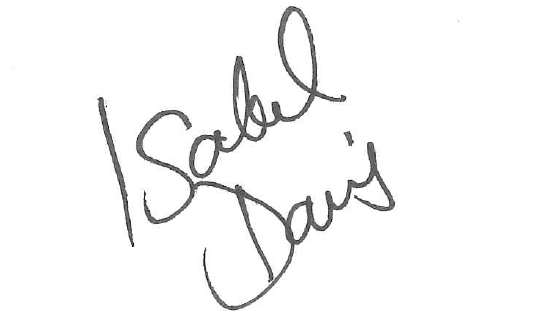 Isabel
Davis